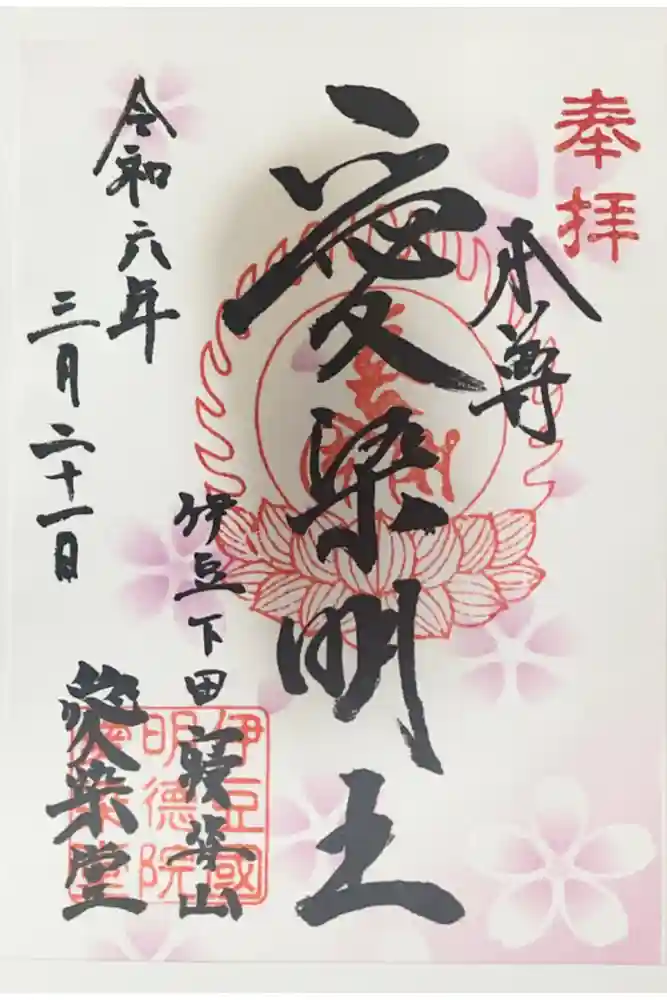 奉拝
本尊
愛染明王
伊豆下田寝姿山
愛染堂
令和六年
三月二十一日
伊豆國
明徳院